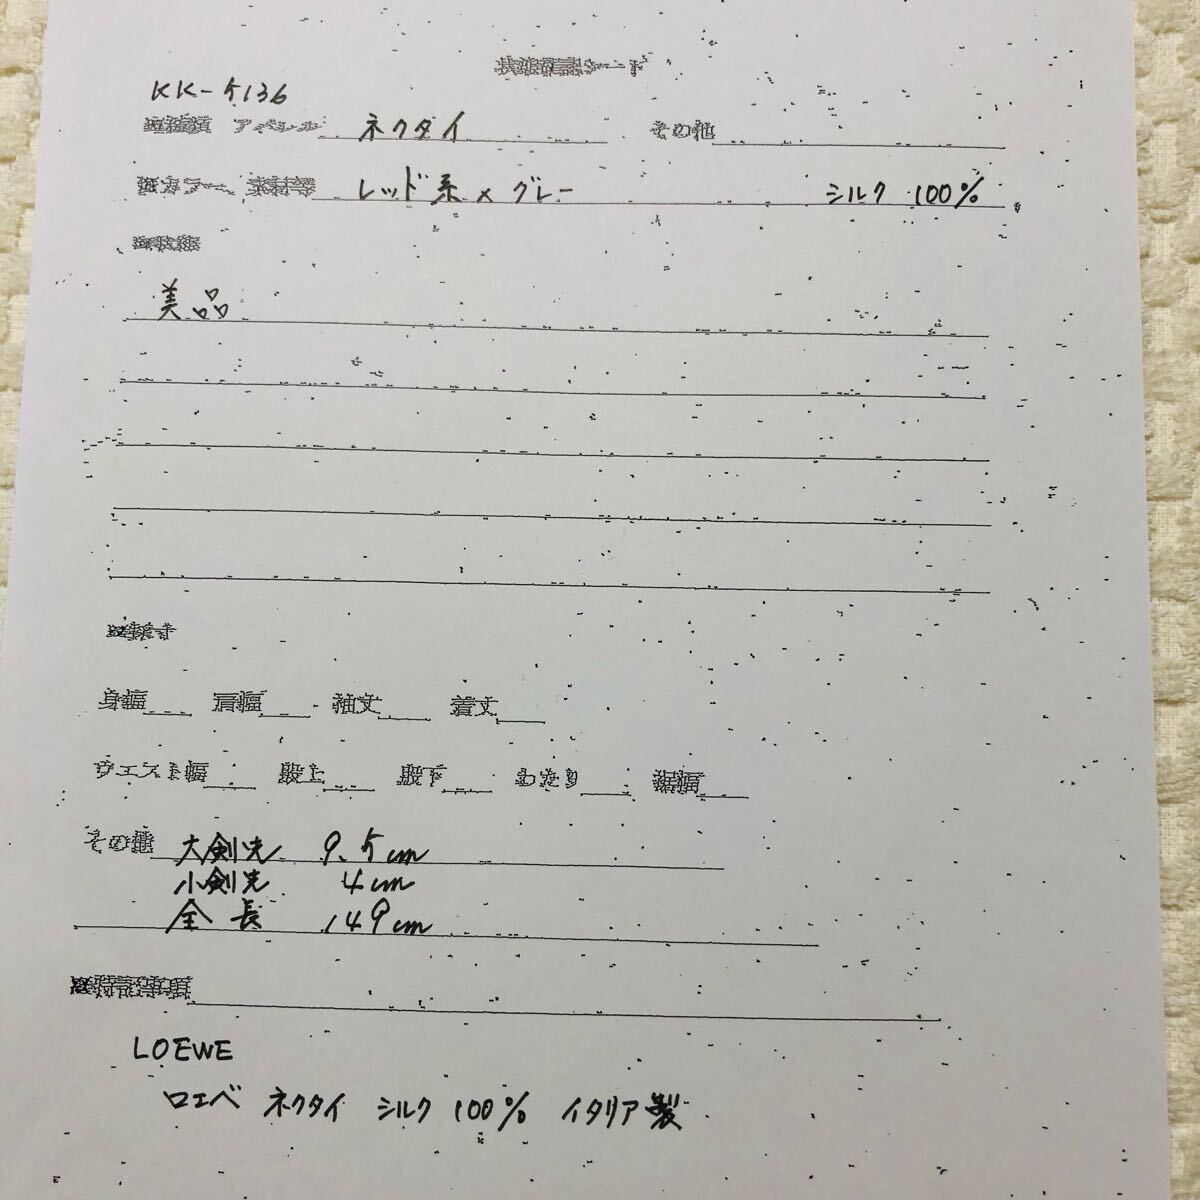 状態確認シート
KK-5136
種類 アパレル ネクタイ その他
カラー、素材等 レッド系×グレー シルク 100%
状態
美品
採寸
身幅 肩幅 袖丈 着丈
ウエスト幅 股上 股下 わたり 裾幅
その他 大剣先 9.5cm
小剣先 4cm
全長 149cm
特記事項
LOEWE
ロエベ ネクタイ シルク 100% イタリア製